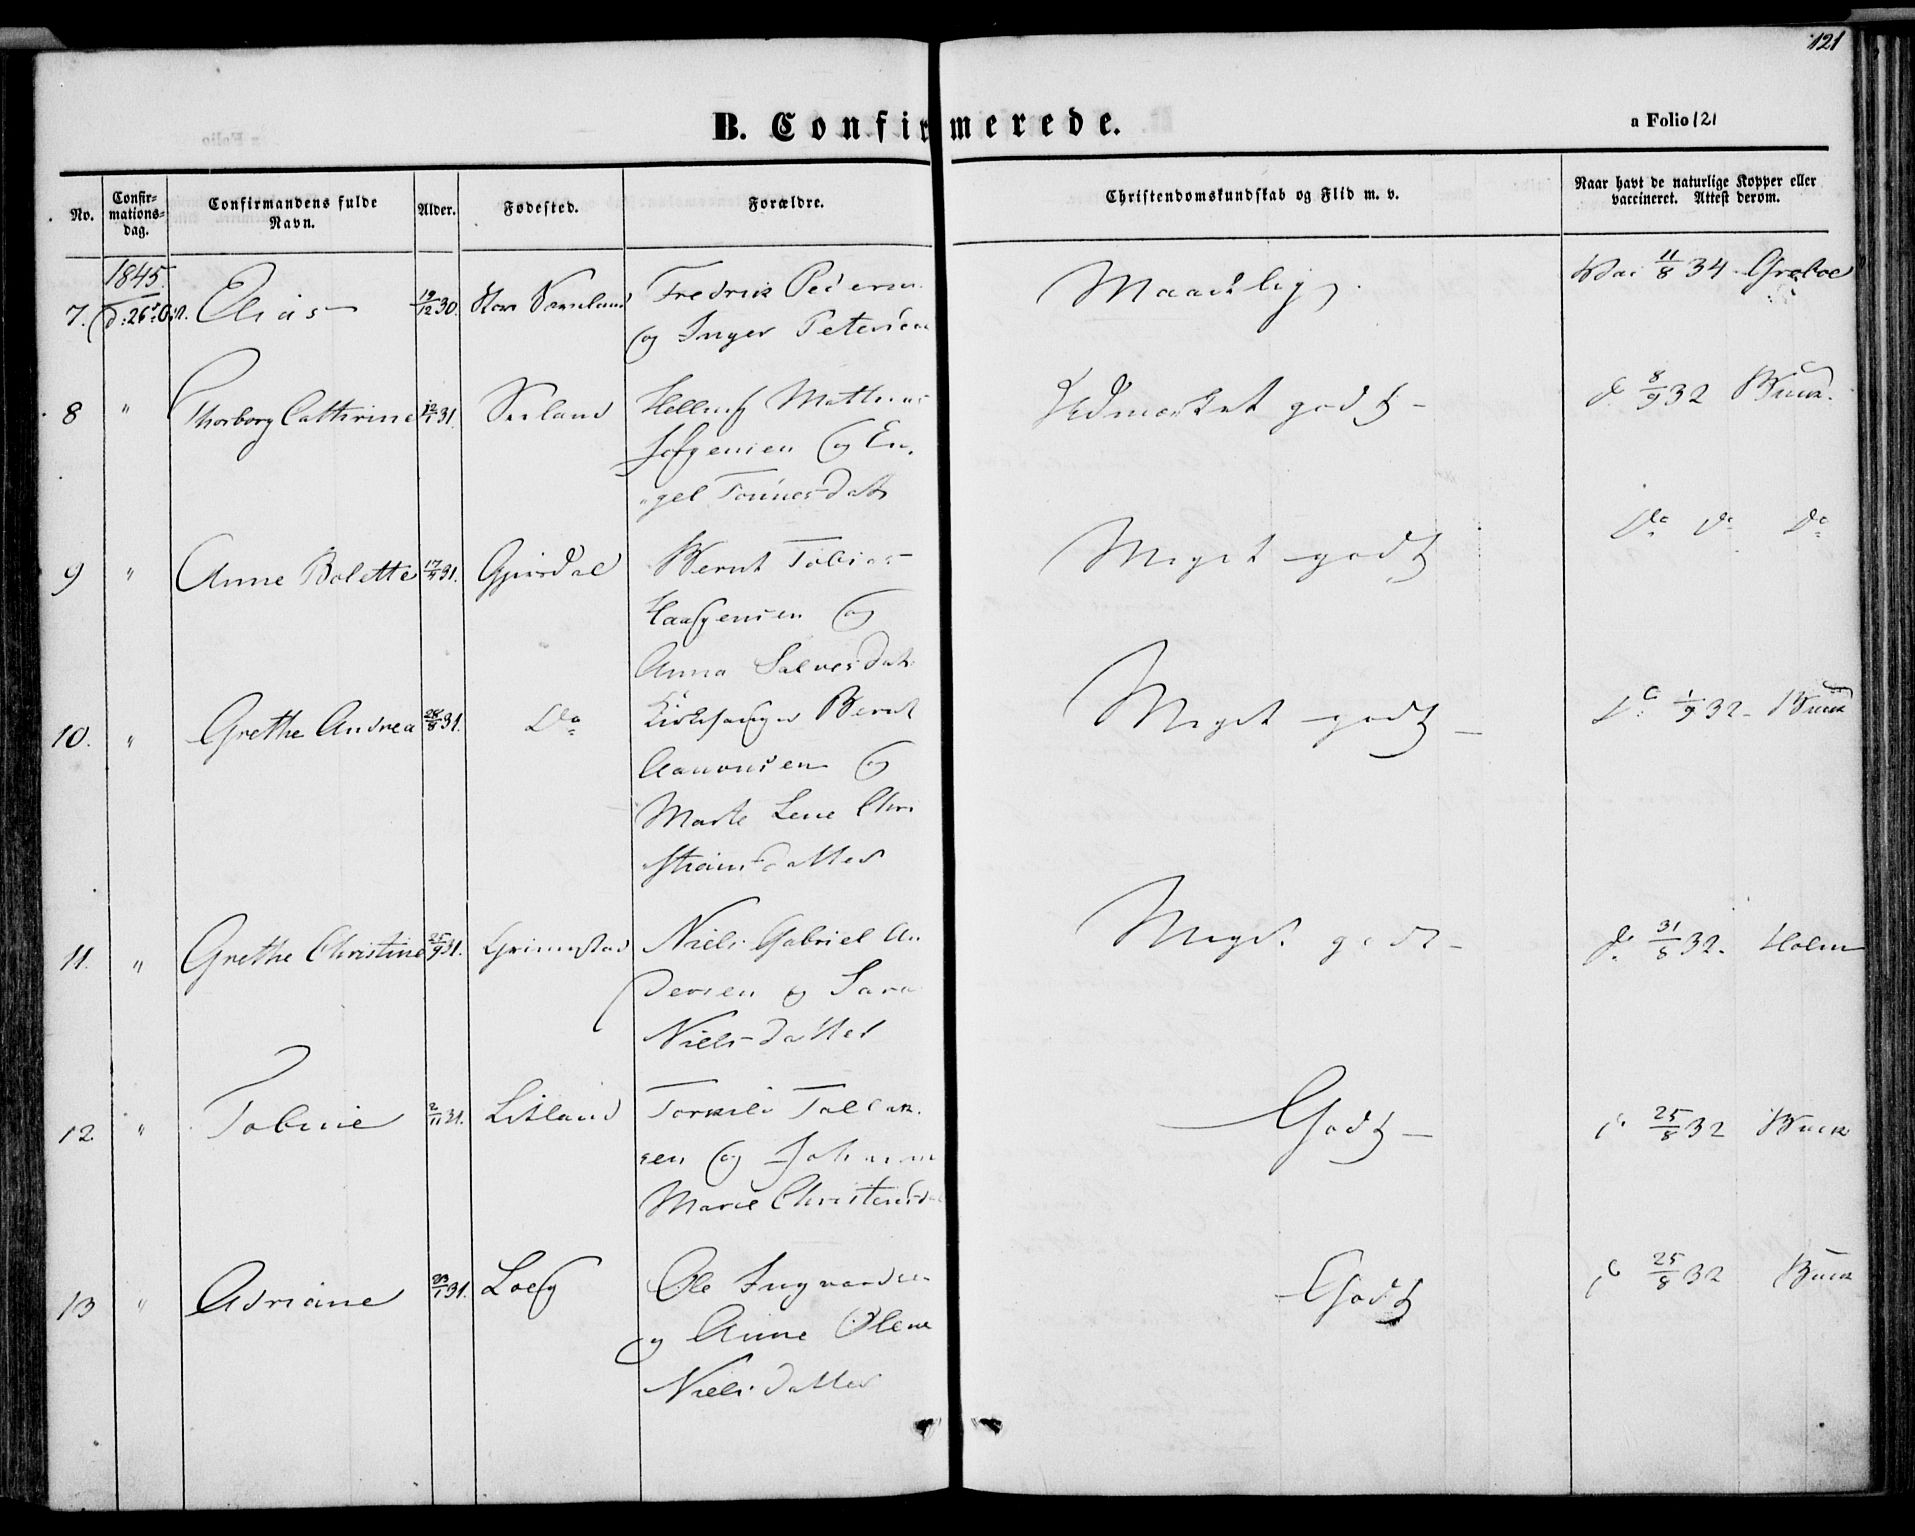 121
B. Confirmerede.
a Folio 121
No.
Confir-
mations-
dag.
Confirmandens fulde
Navn.
Alder.
Fødested.
Forældre.
Christendomskundskab og Flid m. v.
Naar havt de naturlige Kopper eller
vaccineret. Attest derom.
1845.
7. Elias 19/12 30. Fredrik Pedersen
og Inger Petersen
Maadelig
11/8 34
8 " Thorborg Cathrine 12/1 31.
Mathias
Jørgensen og En-
gel Tønnesdatt
Udmærket godt
8/9 32
9 " Anne Bolette 17/4 31. Bernt Tobias
Anna Salvesdat
Meget godt
Do Do Do
10. " Grethe Andrea 28/8 31. Do Kirkesanger Bernt
Aanonsen og
Marte Lene Chri
stiansdatter
Meget godt
Do 1/9 32
11. " Grethe Christine 25/9 31. Grimstad Niels Gabriel An
dersen og Sara
Nielsdatter
Meget godt
Do 31/8 32. Holm
12 " Tobine 2/11 31.
Torkild Tallak
sen og Johanne
Marie
Godt
Do 25/8 32
13 " Adriane 31.
Ole Ingvardsen
og Anne Olene
Nielsdatter
Godt
Do 25/8 32